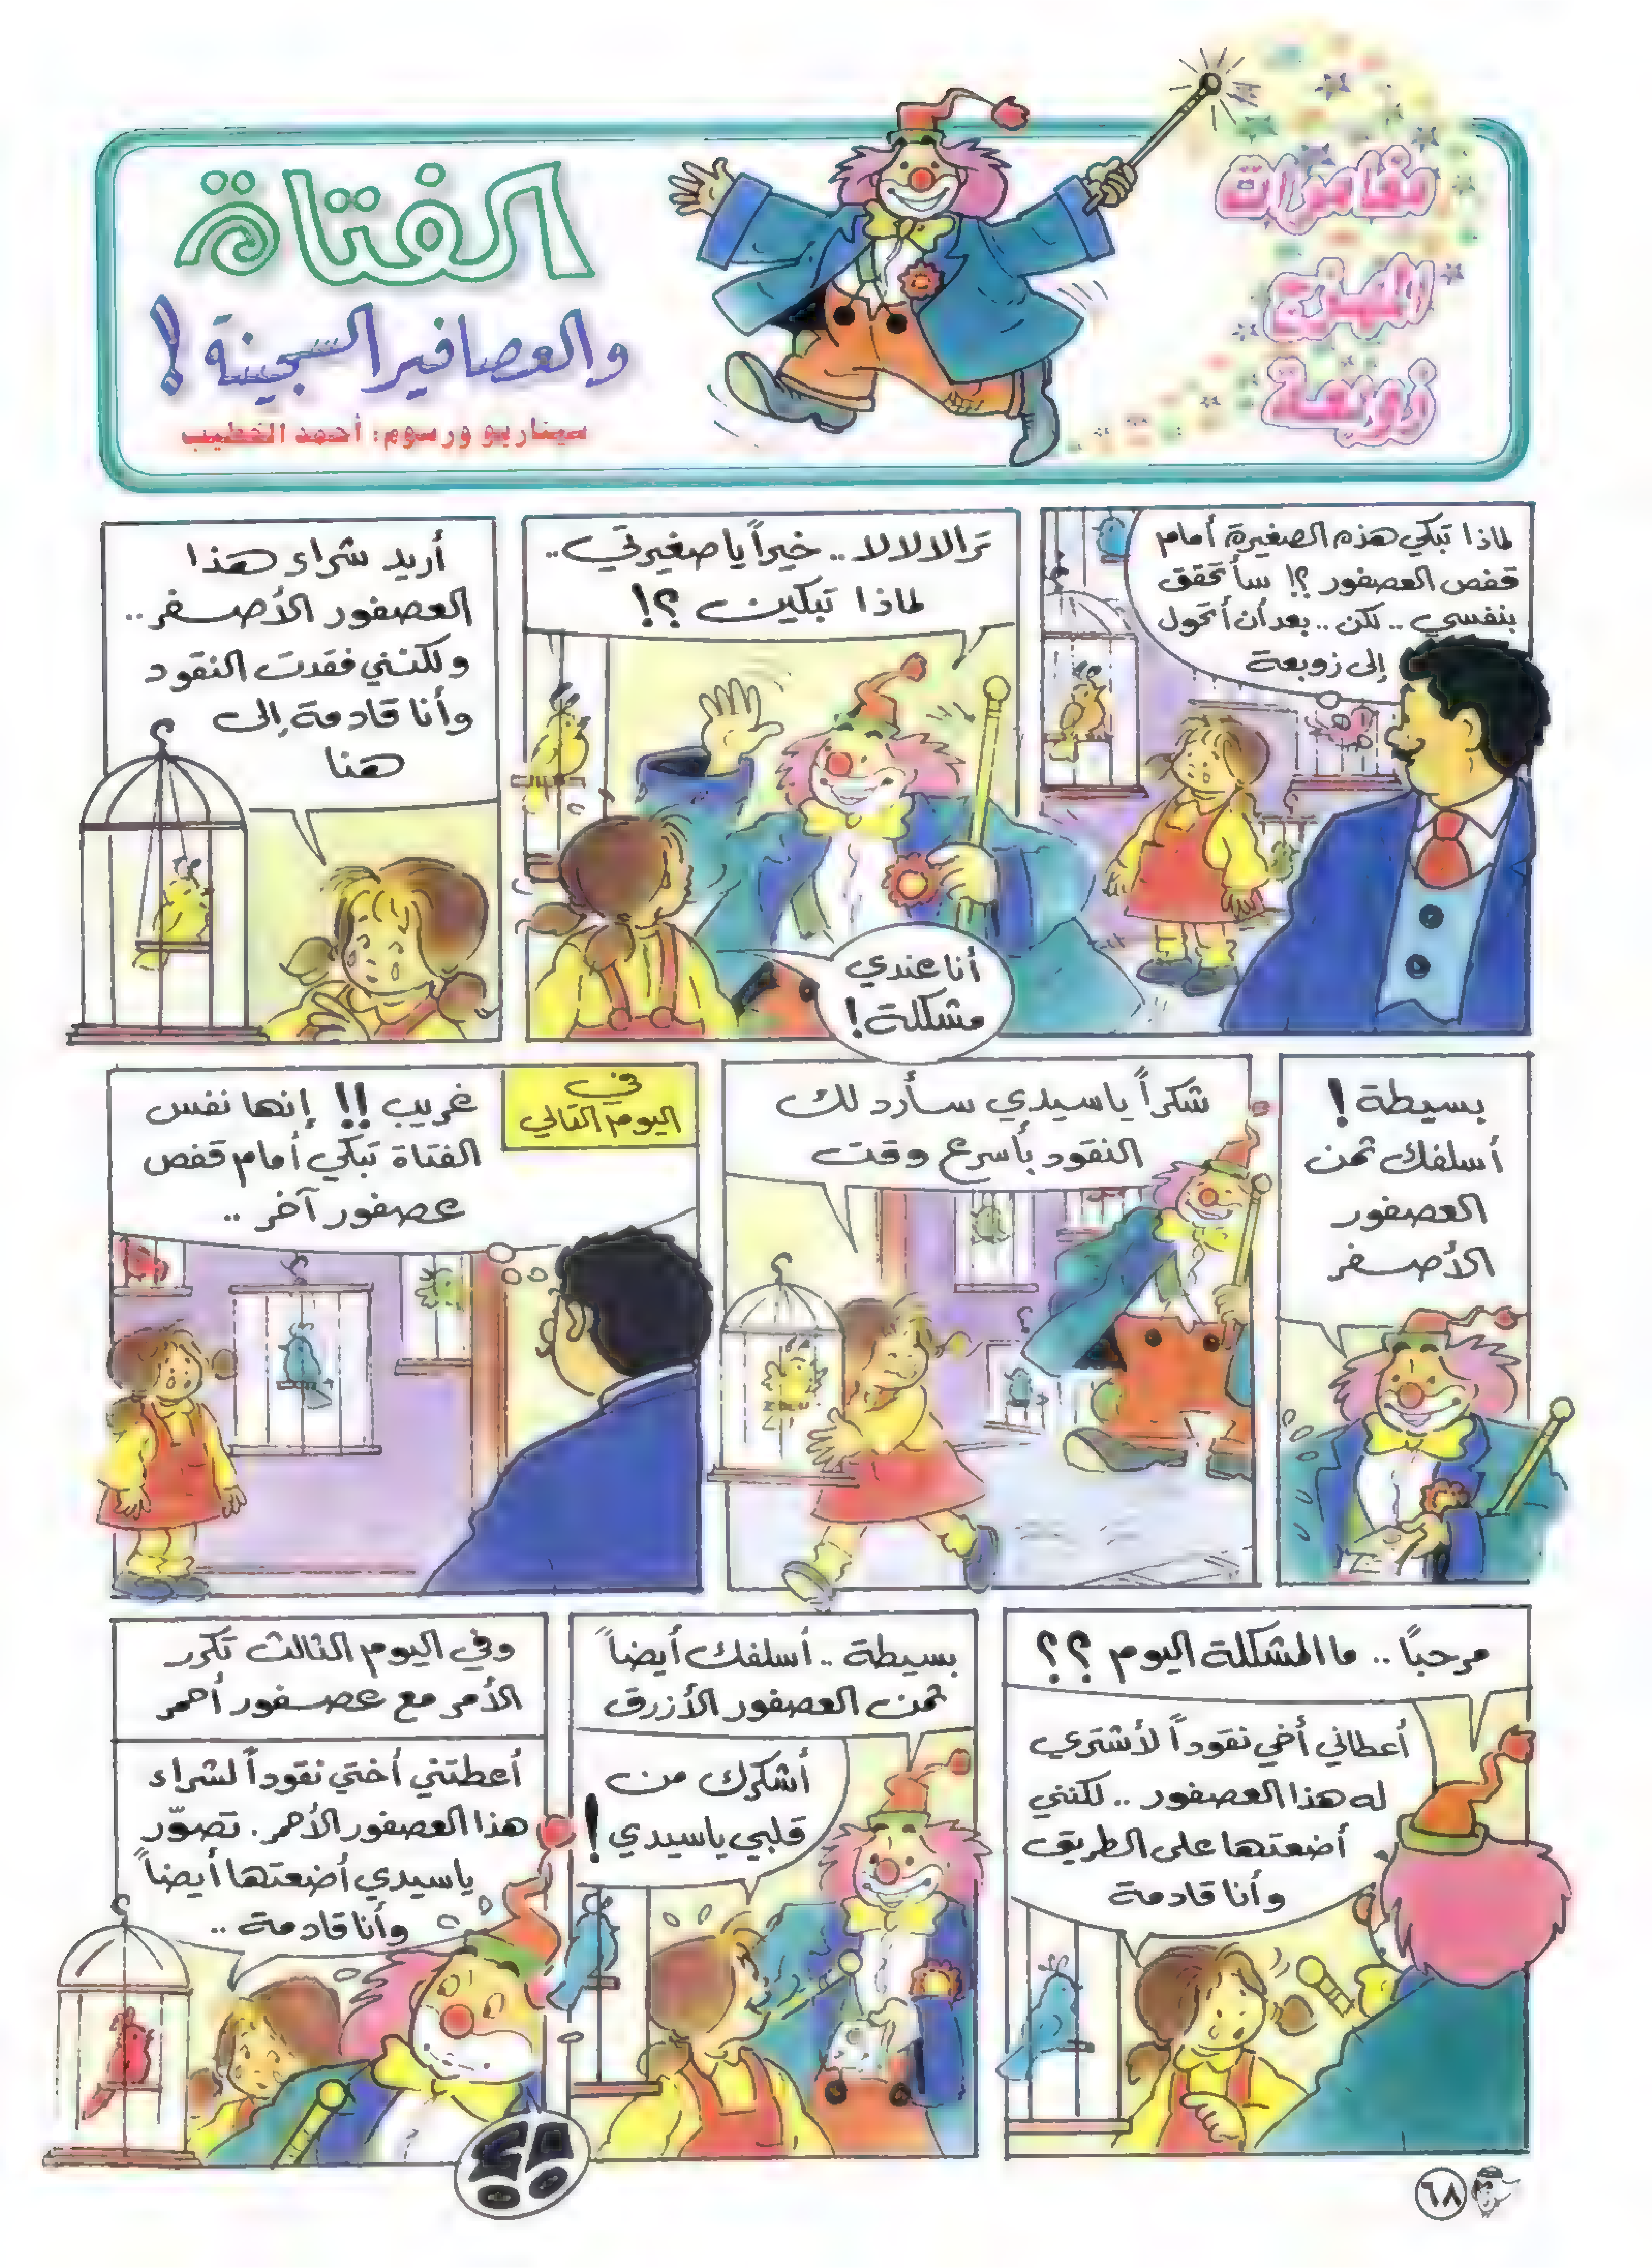 مغامرات
المهرج
زوبعة
الفتاة
والعصافير السجينة!
سيناريو ورسوم: أحمد الخطيب
لماذا تبكي هذه الصغيرة أمام
قفص العصفور ؟! سأتحقق
بنفسي .. لكن .. بعد أن أتحول
إلى زوبعة
ترالالالا .. خيراً يا صغيرتي ..
لماذا تبكين ؟!
أنا عندي
مشكلة!
أريد شراء هذا
العصفور الأصفر ..
ولكنني فقدت النقود
وأنا قادمة إلى
هنا
بسيطة!
أسلفك ثمن
العصفور
الأصفر
شكراً يا سيدي سأرد لك
النقود بأسرع وقت
في
اليوم التالي
غريب !! إنها نفس
الفتاة تبكي أمام قفص
عصفور آخر ..
مرحبًا .. ما المشكلة اليوم ؟؟
أعطاني أخي نقوداً لأشتري
له هذا العصفور .. لكنني
أضعتها على الطريق
وأنا قادمة
بسيطة .. أسلفك أيضاً
ثمن العصفور الأزرق
أشكرك من
قلبي يا سيدي!
وفي اليوم الثالث تكرر
الأمر مع عصفور أحمر
أعطتني أختي نقوداً لشراء
هذا العصفور الأحمر. تصوّر
يا سيدي أضعتها أيضاً
وأنا قادمة ..
؟!
٦٨